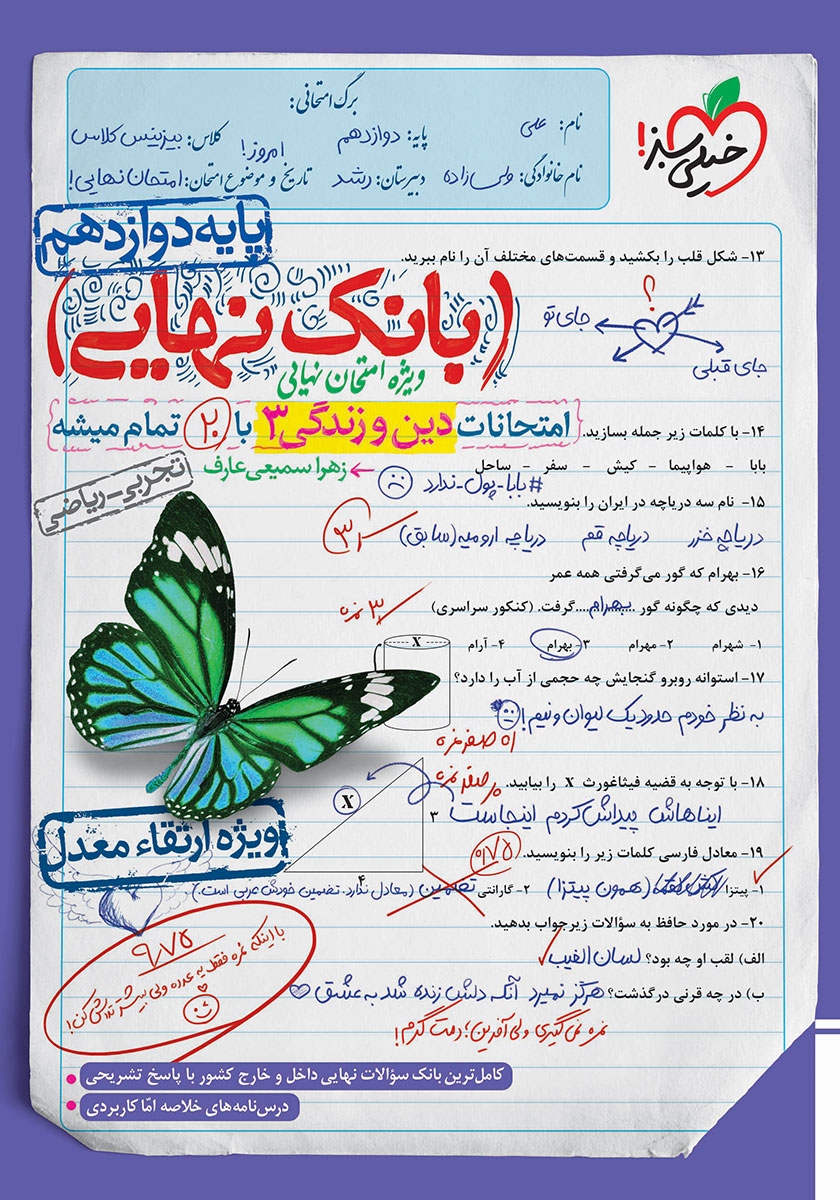 برگ امتحانی:
نام: علی
پایه: دوازدهم
کلاس: بیزینس کلاس
نام خانوادگی: ولی زاده
دبیرستان: رشد
تاریخ و موضوع امتحان: امتحان نهایی!
امروز!
خیلی سبز!
پایه دوازدهم
۱۳- شکل قلب را بکشید و قسمت‌های مختلف آن را نام ببرید.
؟
جای تو
جای قبلی
(بانک نهایی)
ویژه امتحان نهایی
{امتحانات دین و زندگی ۳ با ۲۰ تمام میشه}
زهرا سمیعی عارف
تجربی-ریاضی
۱۴- با کلمات زیر جمله بسازید.
بابا - هواپیما - کیش - سفر - ساحل
#بابا-پول-ندارد
۱۵- نام سه دریاچه در ایران را بنویسید.
دریاچه خزر دریاچه قم دریاچه ارومیه (سابق)
۱۶- بهرام که گور می‌گرفتی همه عمر
دیدی که چگونه گور ..بهرام.... گرفت. (کنکور سراسری)
۳ نمره
۱- شهرام ۲- مهرام ۳- بهرام ۴- آرام
X
۱۷- استوانه روبرو گنجایش چه حجمی از آب را دارد؟
به نظر خودم حدود یک لیوان و نیم!
۱۸- با توجه به قضیه فیثاغورث X را بیابید.
صفر نمره
X
۳
۴
ایناهاش پیداش کردم اینجاست
۱۹- معادل فارسی کلمات زیر را بنویسید.
۰/۷۵
۱- پیتزا (همون پیتزا) ۲- گارانتی تضمین (معادل ندارد. تضمین خودش عربی است.)
۲۰- در مورد حافظ به سؤالات زیر جواب بدهید.
الف) لقب او چه بود؟ لسان الغیب
ب) در چه قرنی درگذشت؟ هرگز نمیرد آنکه دلش زنده شد به عشق
نمره نمی‌گیری ولی آفرین؛ دمت گرم!
ویژه ارتقاء معدل
۹/۷۵
با اینکه نمره فقط یه عدده ولی بیشتر تلاش کن!
کامل‌ترین بانک سؤالات نهایی داخل و خارج کشور با پاسخ تشریحی
درس‌نامه‌های خلاصه امّا کاربردی